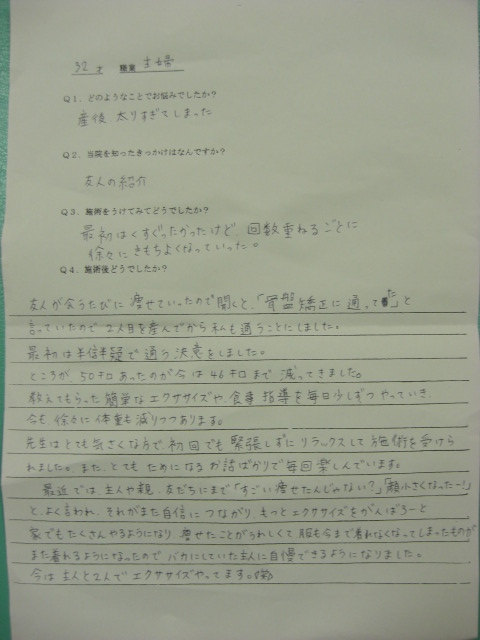 32 才 職業 主婦
Q1. どのようなことでお悩みでしたか？
産後、太りすぎてしまった
Q2. 当院を知ったきっかけはなんですか？
友人の紹介
Q3. 施術をうけてみてどうでしたか？
最初はくすぐったかったけど、回数重ねるごとに
徐々にきもちよくなっていった。
Q4. 施術後どうでしたか？
友人が会うたびに痩せていったので聞くと、「骨盤矯正に通ってた」と
言っていたので2人目を産んでから私も通うことにしました。
最初は半信半疑で通う決意をしました。
ところが、50キロあったのが今は46キロまで減ってきました。
教えてもらった簡単なエクササイズや、食事指導を毎日少しずつやっていき、
今も、徐々に体重も減りつつあります。
先生はとても気さくな方で、初回でも緊張しずにリラックスして施術を受けら
れました。また、とてもためになるお話ばかりで毎回楽しんでいます。
最近では、主人や親、友だちにまで「すごい痩せたんじゃない？」「顔小さくなったー！」
と、よく言われ、それがまた自信につながり、もっとエクササイズをがんばろーと
家でもたくさんやるようになり 痩せたことがうれしくて服も今まで着れなくなってしまったものが
また着れるようになったので バカにしていた主人に自慢できるようになりました。
今は主人と2人でエクササイズやってます。(笑)